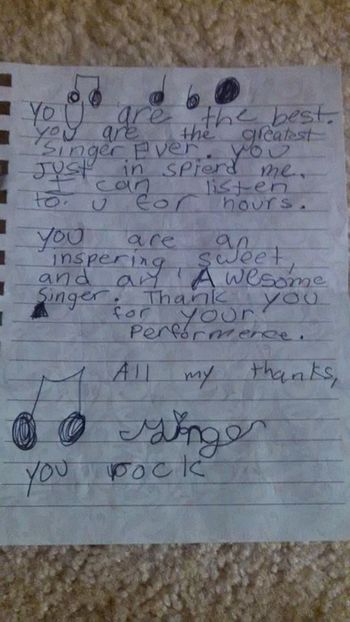 You are the best.
You are the greatest
Singer Ever. You
Just in spierd me.
I can listen
to. u for hours.
you are an
inspering sweet,
and an Awesome
Singer. Thank you
for your
performence.
All my thanks,
Ginger
you rock